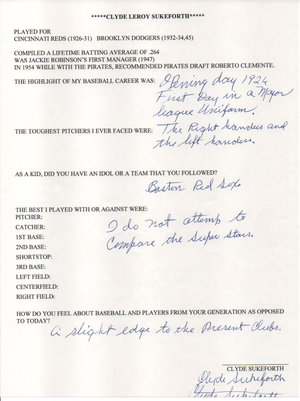 *****CLYDE LEROY SUKEFORTH*****
PLAYED FOR
CINCINNATI REDS (1926-31) BROOKLYN DODGERS (1932-34,45)
COMPILED A LIFETIME BATTING AVERAGE OF .264
WAS JACKIE ROBINSON'S FIRST MANAGER (1947)
IN 1954 WHILE WITH THE PIRATES, RECOMMENDED PIRATES DRAFT ROBERTO CLEMENTE.
THE HIGHLIGHT OF MY BASEBALL CAREER WAS: Opening day 1926
First Day in a Major
league Uniform.
THE TOUGHEST PITCHERS I EVER FACED WERE: The Right handers and
the left handers.
AS A KID, DID YOU HAVE AN IDOL OR A TEAM THAT YOU FOLLOWED?
Boston Red Sox
THE BEST I PLAYED WITH OR AGAINST WERE:
PITCHER:
CATCHER: I do not attemp to
1ST BASE: Compare the Super Stars.
2ND BASE:
SHORTSTOP:
3RD BASE:
LEFT FIELD:
CENTERFIELD:
RIGHT FIELD:
HOW DO YOU FEEL ABOUT BASEBALL AND PLAYERS FROM YOUR GENERATION AS OPPOSED
TO TODAY?
A slight edge to the Present Clubs.
CLYDE SUKEFORTH
Clyde Sukeforth
Clyde Sukeforth